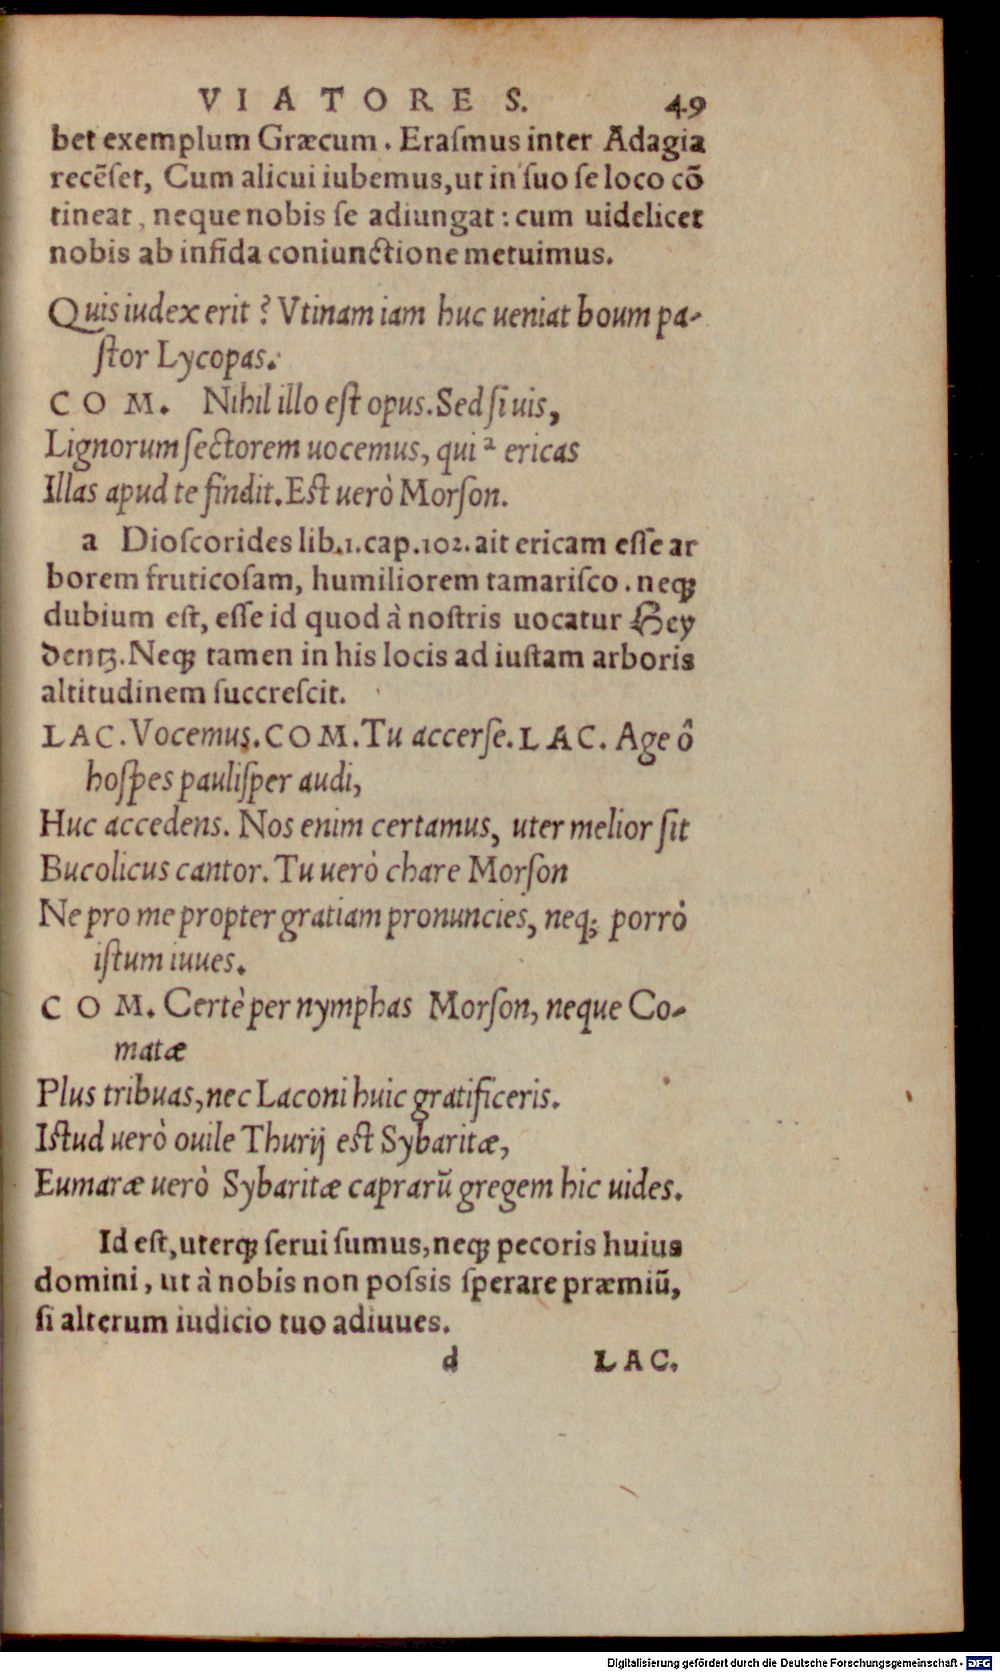 VIATORES. 49
bet exemplum Græcum. Eraſmus inter Adagia
recẽſet, Cum alicui iubemus, ut in ſuo ſe loco cõ
tineat, neque nobis ſe adiungat: cum uidelicet
nobis ab infida coniunctione metuimus.
Quis iudex erit? Vtinam iam huc ueniat boum pa-
ſtor Lycopas.
COM. Nihil illo eſt opus. Sed ſi uis,
Lignorum ſectorem uocemus, qui ᵃ ericas
Illas apud te findit. Eſt uerò Morſon.
a Dioſcorides lib.1.cap.102. ait ericam eſſe ar
borem fruticoſam, humiliorem tamariſco. neqꝫ
dubium eſt, eſſe id quod à noſtris uocatur Hey
dentz. Neqꝫ tamen in his locis ad iuſtam arboris
altitudinem ſuccreſcit.
LAC. Vocemus. COM. Tu accerſe. LAC. Age ô
hoſpes pauliſper audi,
Huc accedens. Nos enim certamus, uter melior ſit
Bucolicus cantor. Tu uerò chare Morſon
Ne pro me propter gratiam pronuncies, neq; porrò
iſtum iuues.
COM. Certè per nymphas Morſon, neque Co-
matæ
Plus tribuas, nec Laconi huic gratificeris.
Iſtud uerò ouile Thurij eſt Sybaritæ,
Eumaræ uerò Sybaritæ caprarũ gregem hic uides.
Id eſt, uterqꝫ ſerui ſumus, neqꝫ pecoris huius
domini, ut à nobis non poſsis ſperare præmiũ,
ſi alterum iudicio tuo adiuues.
d LAC.
Digitalisierung gefördert durch die Deutsche Forschungsgemeinschaft - DFG